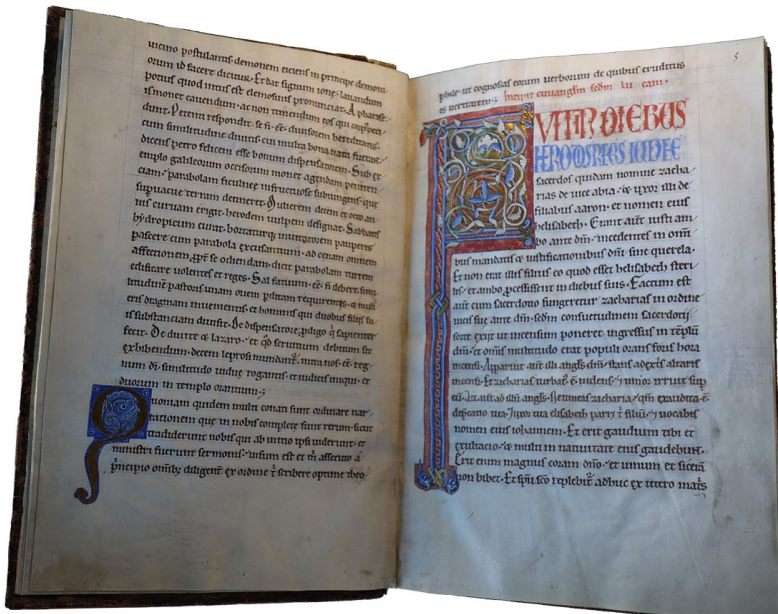 uicino postulantis demonem eiciens in principe demoni
orum id facere dicitur. Et dat signum ione. lauandum
potius quod intus est elemosinis pronunciat. A pharise
is monet cauendum. ac non timendum eos qui corpus occi
dunt. Petenti respondit. se n̄ ēē diuisorem hereditatis.
cum similitudine diuitis cui multa bona nata fuerat.
dicens petro felicem esse bonum dispensatorem. Sub ex
emplo galileorum occisorum monet agendam peniten
ciam. parabolam ficulnee infructuose subiungens. que
Mulierem decem et octo an
nis curuam erigit. herodem uulpem designat. Sabbatis
hydropicum curat. hortaturque inuitatorem pauperes
pascere cum parabola excusantium. ad etiam omnem
dicit parabolam turrem
edificare uolentes et reges. Sal fatuum.
tudinē pastoris unam ouem pditam requirentis. & muli
eris dragmam inuenientis. et hominis qui duobus filiis su
is substanciam diuisit. De dispensatore pdigo q sapienter
fecit. De diuite & lazaro. et
exhibendum. decem leprosi mundant̄. intra nos ēē reg
num dī. similitudo uidue rogantis. et iudicis iniqui. et
duorum in templo orantium.;
Quoniam quidem multi conati sunt ordinare nar
rationem que in nobis complete sunt rerum. sicut
tradiderunt nobis qui ab initio ipsi uiderunt. et
ministri fuerunt sermonis. uisum est et m̄ assecuto a
principio omnib; diligent̄ ex ordine t̄ scribere optime theo
5
phile. ut cognoscas eorum uerborum de quibus eruditus
es ueritatem.; Incipit euuangl'm sedm lucam.
FUIT IN DIEBUS
HERODIS REGIS IUDEE
sacerdos quidam nomine zacha
rias de uice abia. & uxor illi de
filiabus aaron. et nomen eius
helisabeth. Erant aut̄ iusti am
bo ante dm̄. incedentes in omib;
bus mandatis & iustificationibus dm̄ sine querela.
Et non erat illis filius eo quod esset helisabeth steri
lis. et ambo pcessissent in diebus suis. Factum est
aut̄ cum sacerdotio fungeretur zacharias in ordine
uicis sue ante dm̄. sedm consuetudinem sacerdotij.
sorte exiit ut incensum poneret ingressus in templū
dm̄. et omīs multitudo erat populi orans foris hora
incensi. Apparuit aut̄ illi angls dm̄. stans adextris altaris
incensi. Et zacharias turbat̄ ē uidens. & timor irruit sup
eū. Ait aut̄ ad illū angls. Ne timeas zacharia. qm̄ exaudita ē
depcatio tua. & uxor tua elisabeth pariet t̄ filiū. & uocabis
nomen eius iohannem. Et erit gaudium tibi et
exultatio. & multi in natiuitate eius gaudebunt.
Erit enim magnus coram dn̄o. et uinum et siceram
non bibet. Et spu sc̄o replebit̄ adhuc ex utero matris